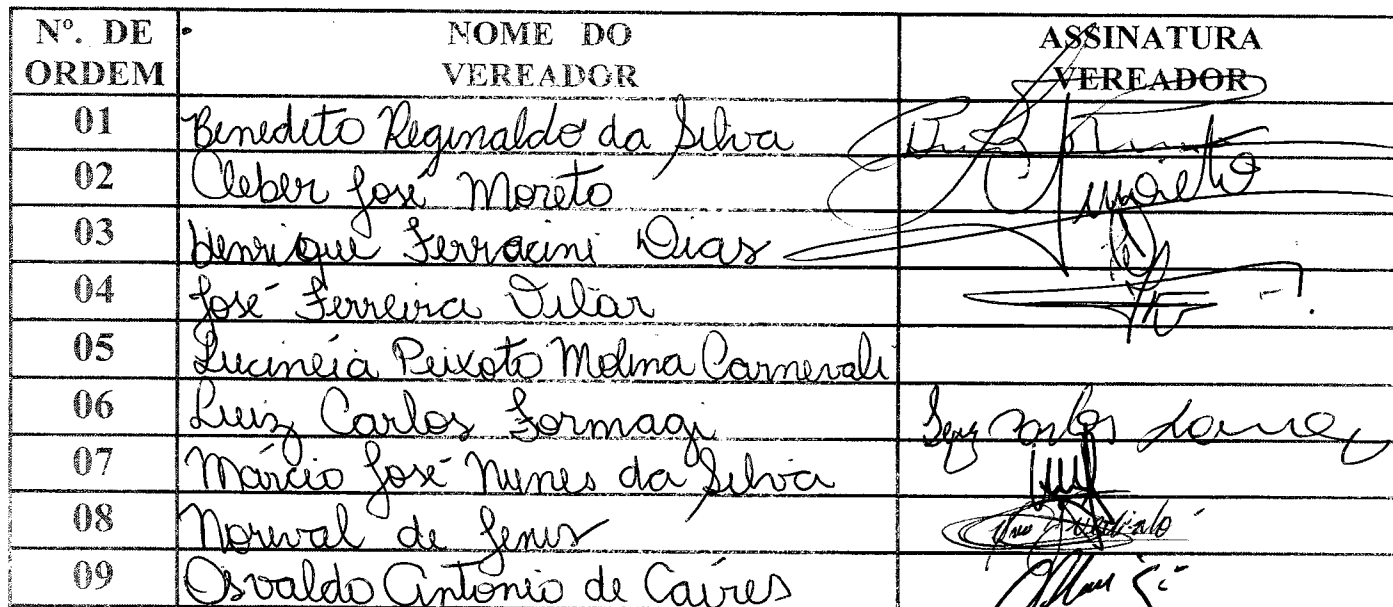 Nº. DE ORDEM NOME DO VEREADOR ASSINATURA VEREADOR
01 Benedito Reginaldo da Silva
02 Cleber José Moreto
03 Henrique Ferracini Dias
04 José Ferreira Vilar
05 Lucinéia Peixoto Molina Carnevali
06 Luiz Carlos Formagi Luiz Carlos
07 Márcio José Nunes da Silva
08 Norival de Jenis
09 Osvaldo Antonio de Caires